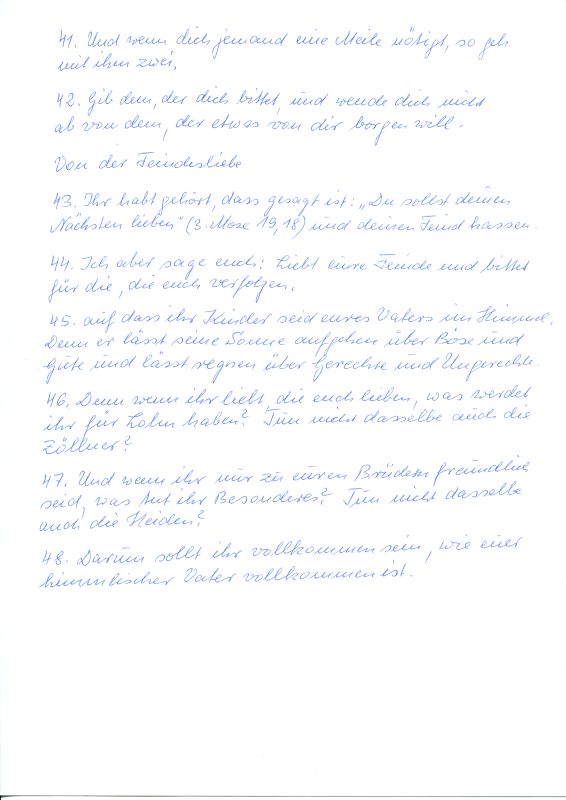 41. Und wenn dich jemand eine Meile nötigt, so geh
mit ihm zwei.
42. Gib dem, der dich bittet, und wende dich nicht
ab von dem, der etwas von dir borgen will.
Von der Feindesliebe
43. Ihr habt gehört, dass gesagt ist: „Du sollst deinen
Nächsten lieben" (3. Mose 19,18) und deinen Feind hassen.
44. Ich aber sage euch: Liebt eure Feinde und bittet
für die, die euch verfolgen.
45. auf dass ihr Kinder seid eures Vaters im Himmel.
Denn er lässt seine Sonne aufgehen über Böse und
Gute und lässt regnen über Gerechte und Ungerechte.
46. Denn wenn ihr liebt, die euch lieben, was werdet
ihr für Lohn haben? Tun nicht dasselbe auch die
Zöllner?
47. Und wenn ihr nur zu euren Brüdern freundlich
seid, was tut ihr Besonderes? Tun nicht dasselbe
auch die Heiden?
48. Darum sollt ihr vollkommen sein, wie euer
himmlischer Vater vollkommen ist.